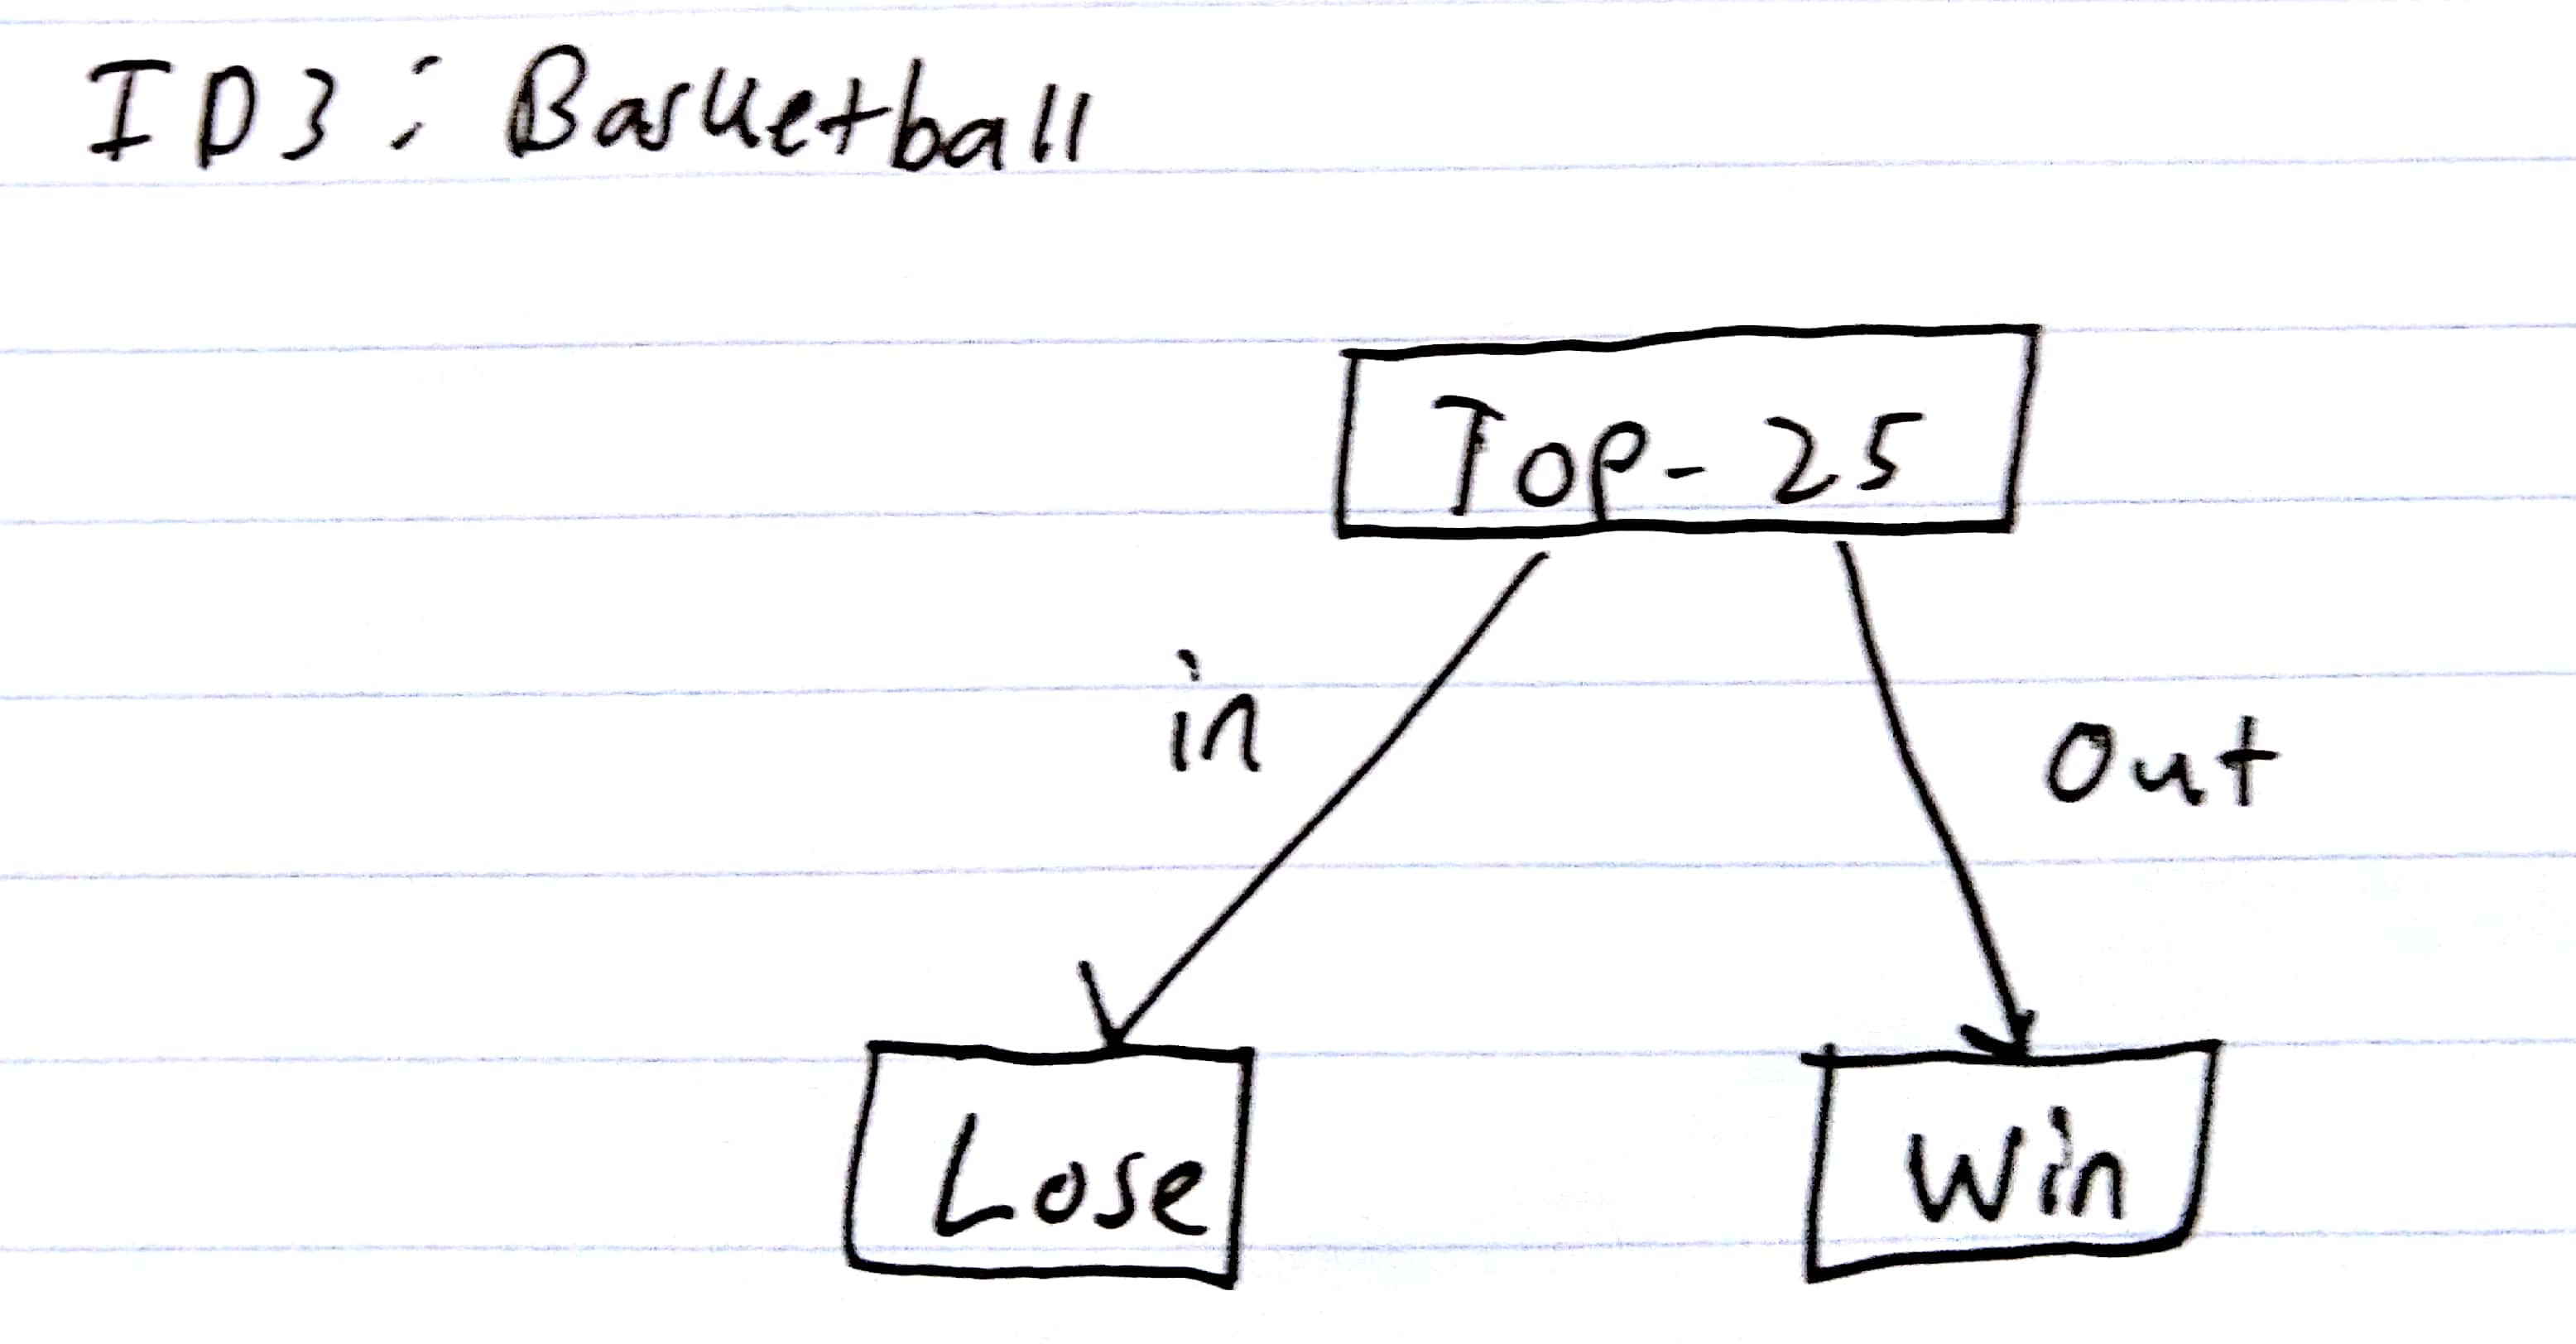 ID3: Basketball
Top-25
in
Out
Lose
Win